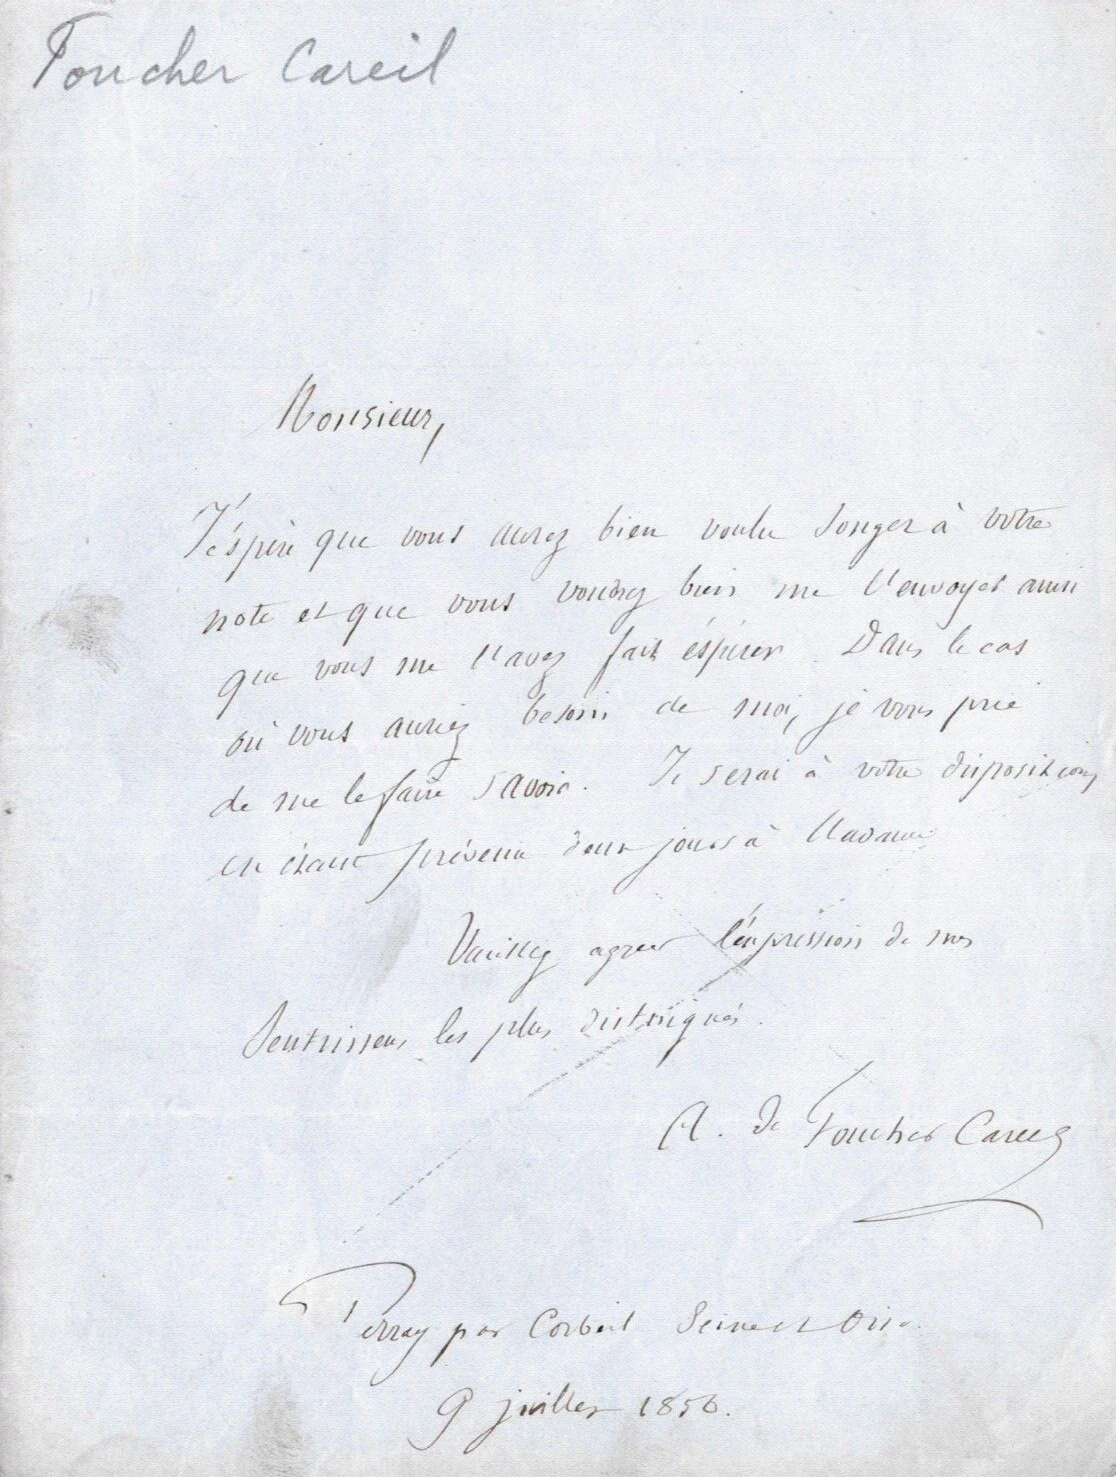 Foucher Careil
Monsieur,
J'éspère que vous aurez bien voulu songer à votre
note et que vous voudrez bien me l'envoyer ainsi
que vous me l'avez fait éspérer. Dans le cas
où vous auriez besoin de moi, je vous prie
de me le faire savoir. Je serai à votre disposition
en étant prévenu deux jours à l'avance
Veuillez agréer l'éxpression de mes
sentimens les plus distingués.
A. de Foucher Careil
Perray par Corbeil Seine et Oise.
9 juillet 1856.